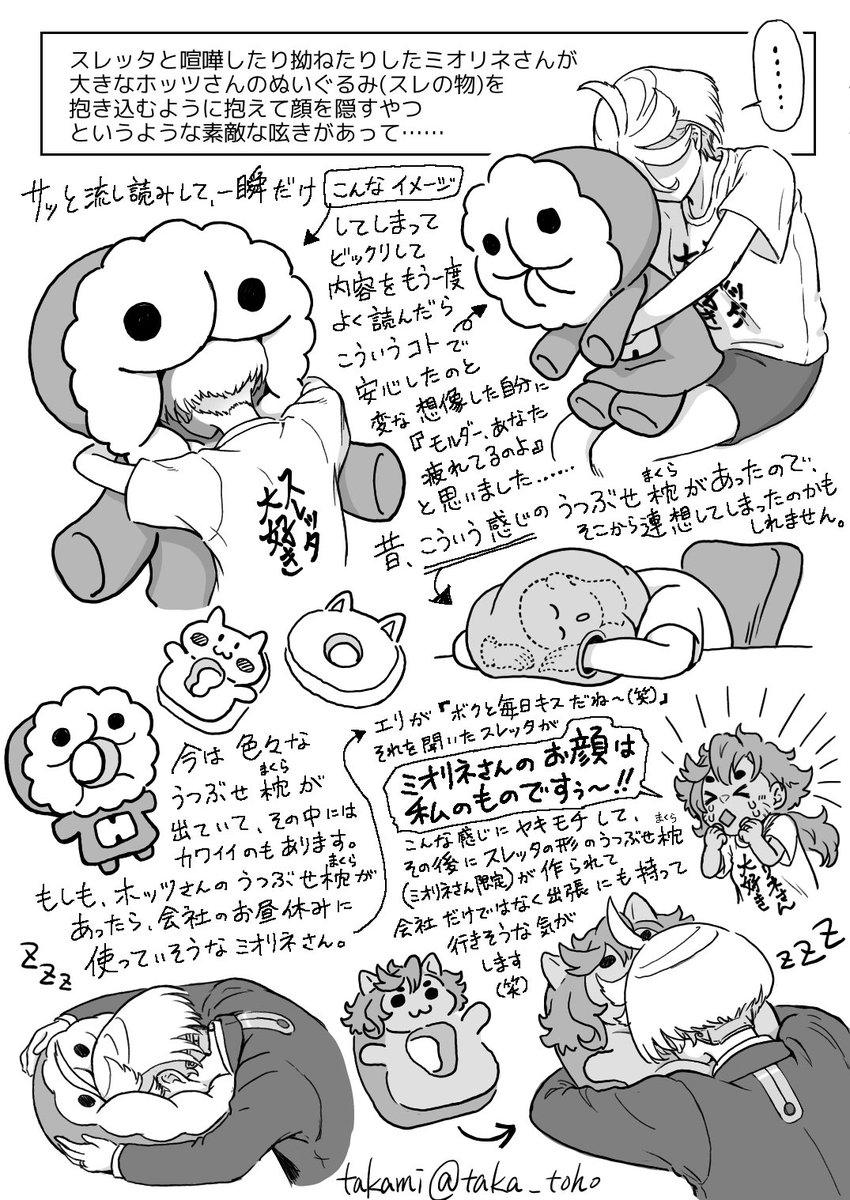 スレッタと喧嘩したり拗ねたりしたミオリネさんが
大きなホッツさんのぬいぐるみ(スレの物)を
抱き込むように抱えて顔を隠すやつ
というような素敵な呟きがあって……
……
サッと流し読みして、一瞬だけ
こんなイメージ
してしまって
ビックリして
内容をもう一度
よく読んだら
こういうコトで
安心したのと
変な想像した自分に
『モルダー、あなた
疲れてるのよ』
と思いました……
スレッタ
大好き
スレッタ
大好き
昔、こういう感じのうつぶせ枕があったので、
まくら
そこから連想してしまったのかも
しれません。
今は色々な
うつぶせ枕が
まくら
出ていて、その中には
カワイイのもあります。
もしも、ホッツさんのうつぶせ枕が
まくら
あったら、会社のお昼休みに
使っていそうなミオリネさん。
エリが『ボクと毎日キスだね〜(笑)』
それを聞いたスレッタが
ミオリネさんのお顔は
私のものですぅ〜!!
こんな感じにヤキモチして、
その後にスレッタの形のうつぶせ枕
まくら
(ミオリネさん限定)が作られて
会社だけではなく出張にも持って
行きそうな気が
します
(笑)
リネさん
大好き
zzz
zzz
takami@taka_toho